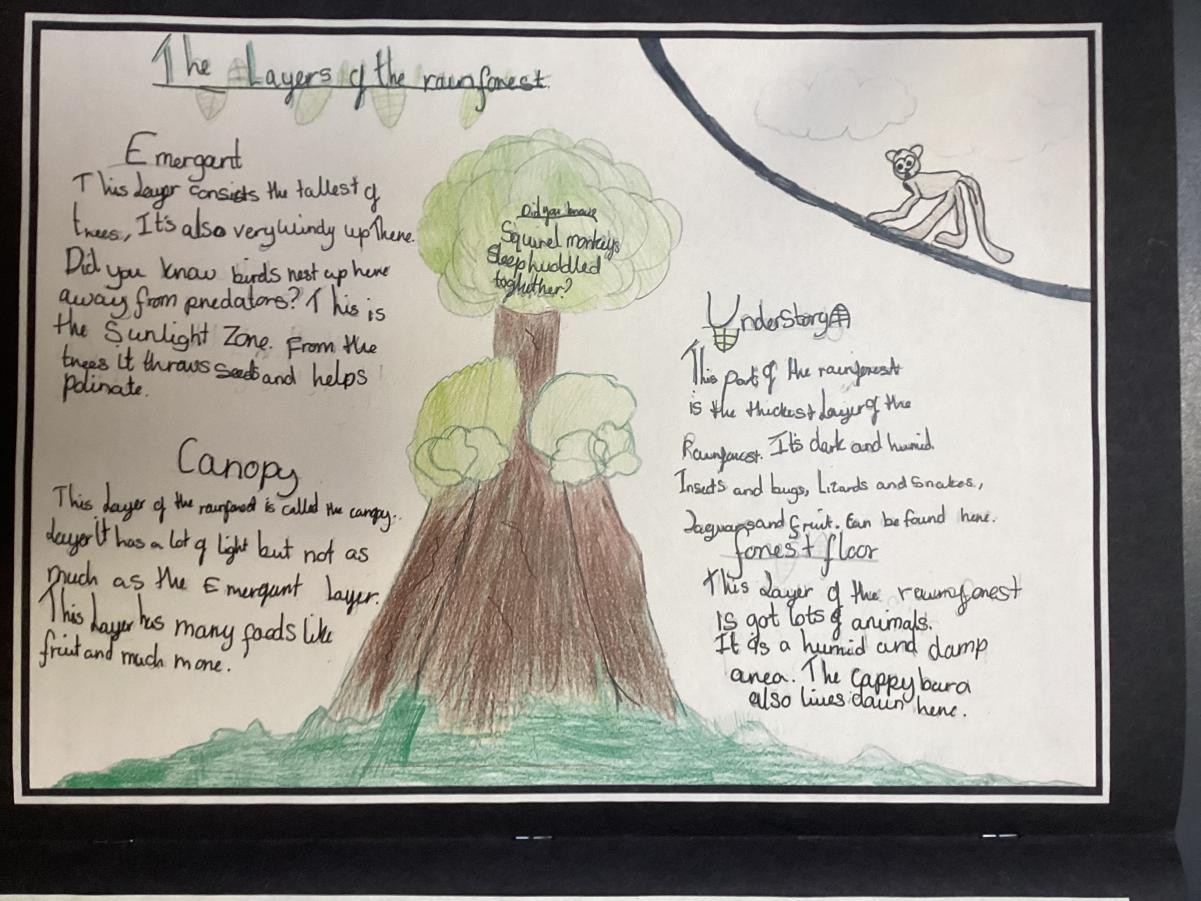 The Layers of the rainforest.
Emergant
This layer consists the tallest of
trees, It's also very windy up there.
Did you know birds nest up here
away from predators? This is
the Sunlight Zone. From the
trees it throws seeds and helps
polinate.
Canopy
This layer of the rainforest is called the canopy.
layer It has a lot of light but not as
much as the Emergant layer.
This layer has many foods like
fruit and much more.
Did you know
Squirrel monkeys
sleep huddled
toghether?
Understory
This part of the rainforest
is the thickest layer of the
Rainforest. It's dark and humid.
Insects and bugs, Lizards and Snakes,
Jaguars and fruit. Can be found here.
forest floor
This layer of the rainforest
is got lots of animals.
It is a humid and damp
area. The cappybara
also lives down here.